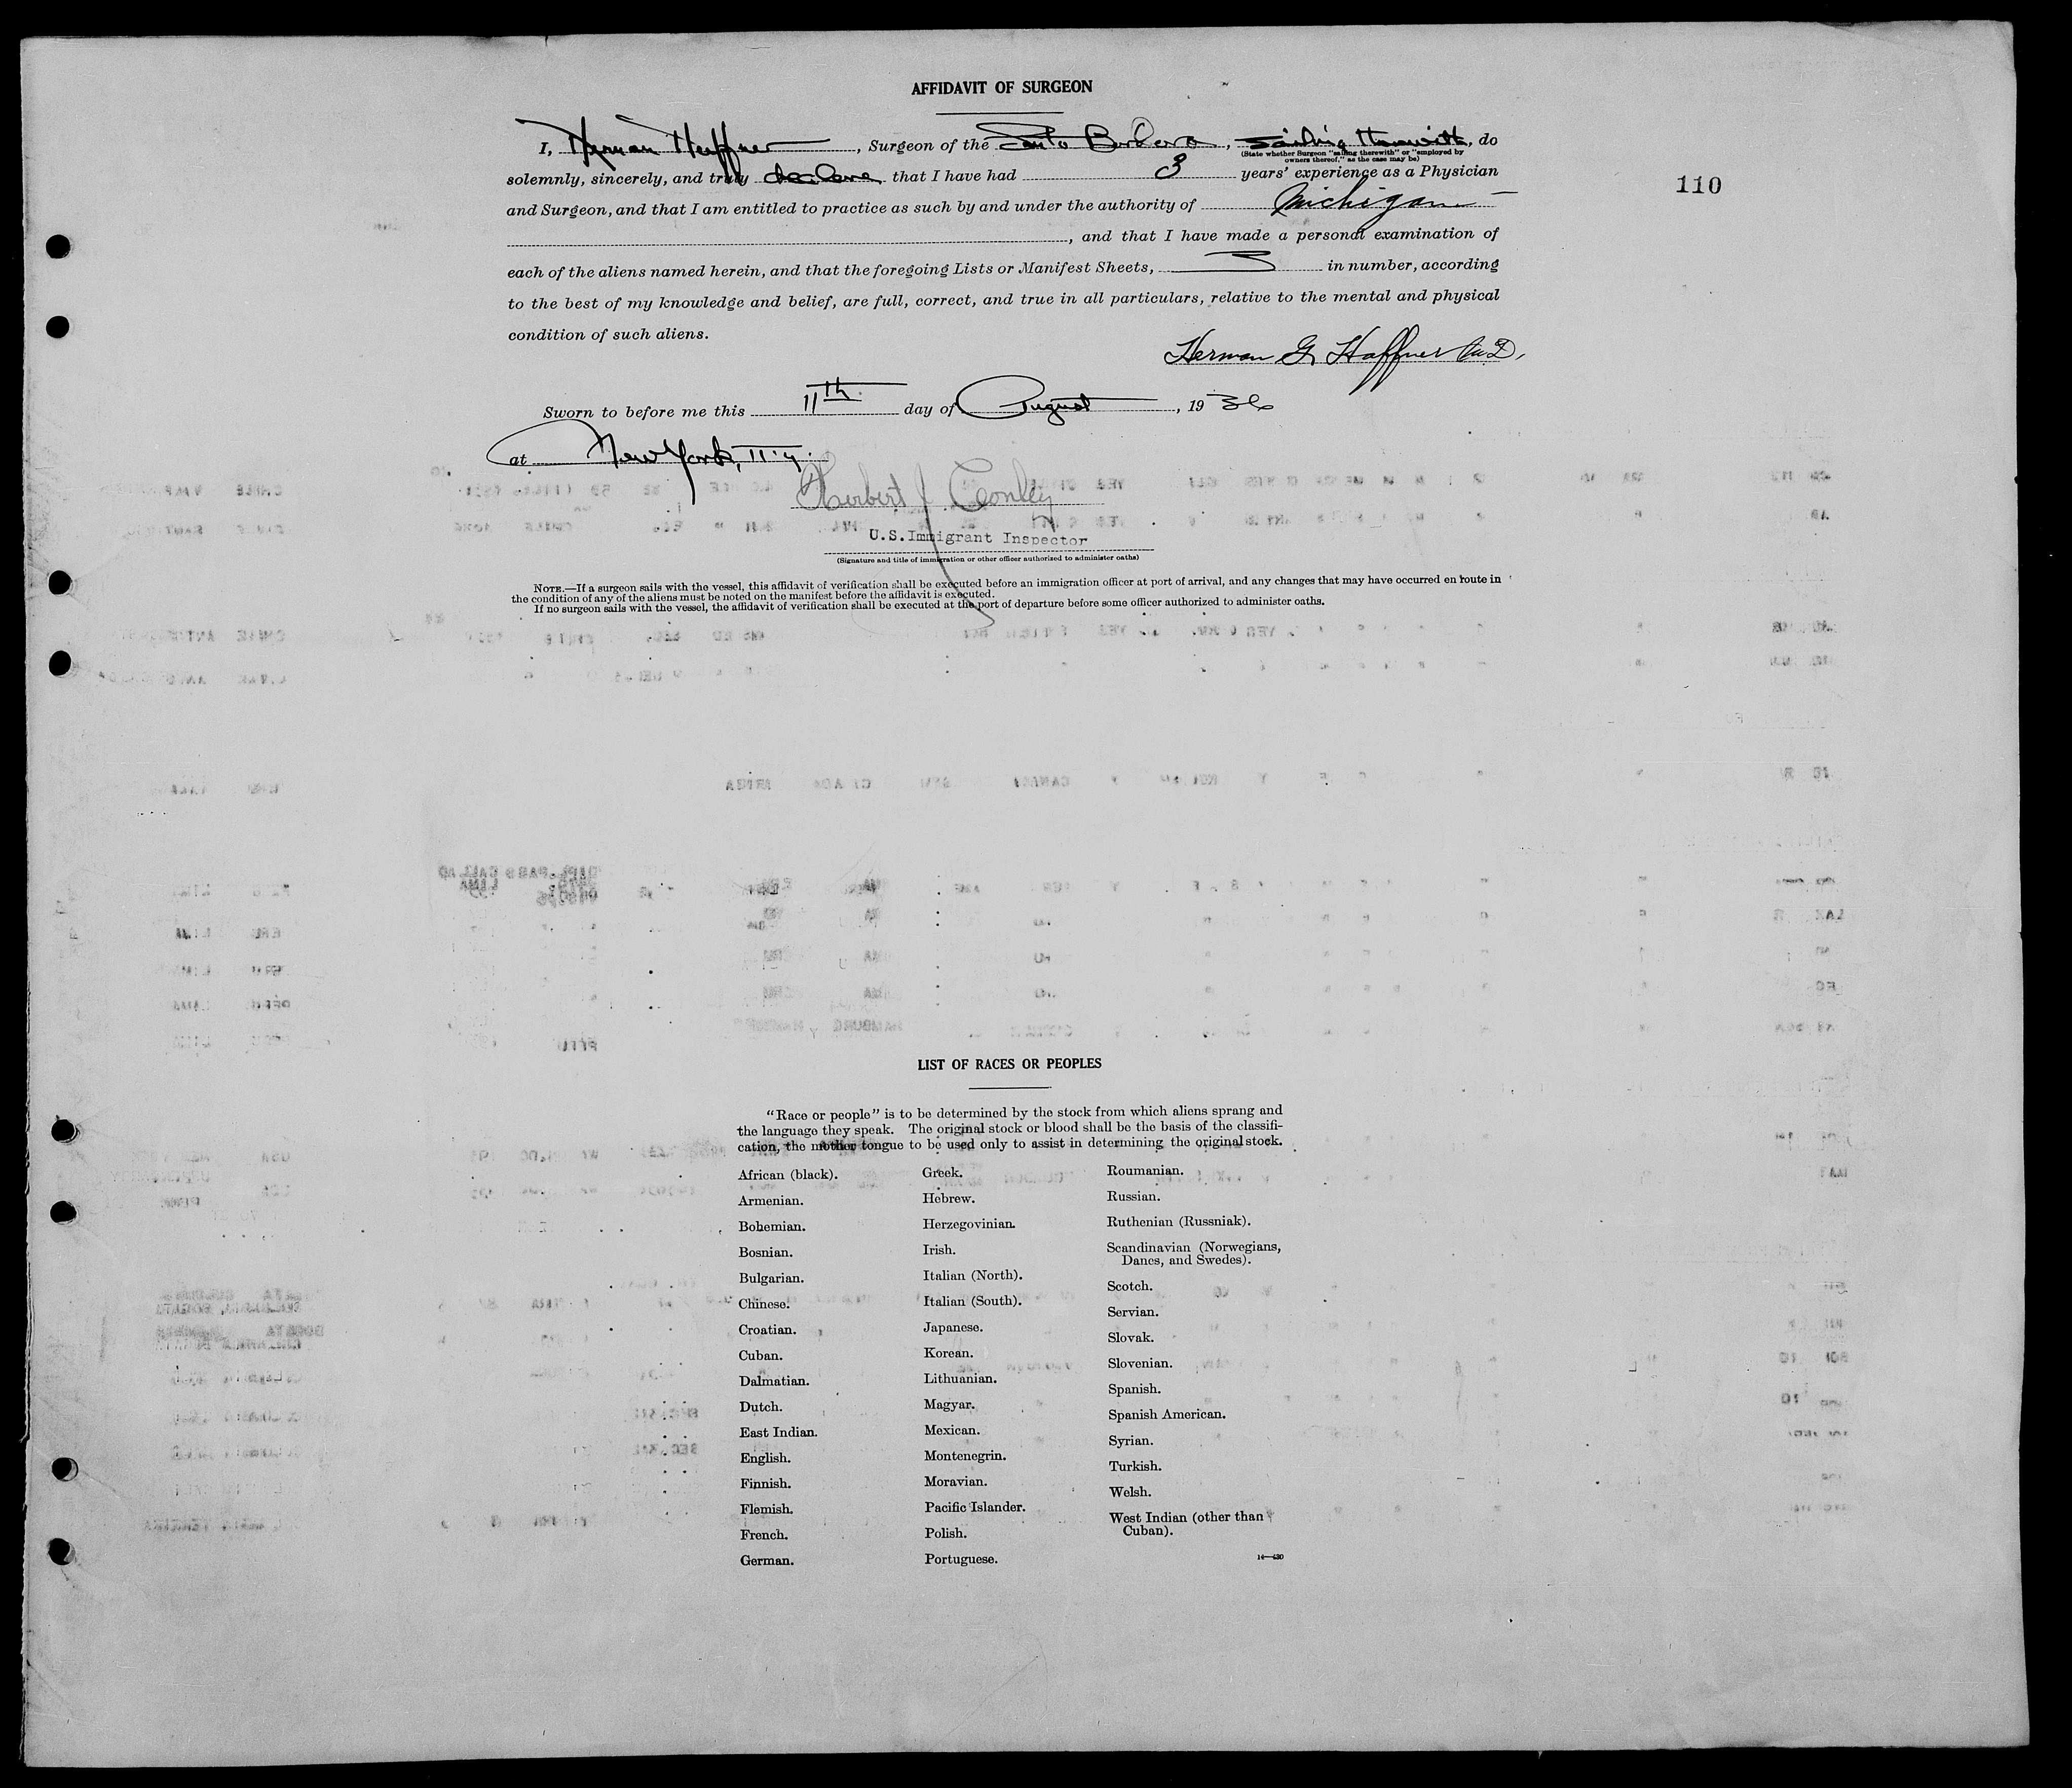 AFFIDAVIT OF SURGEON
I, Herman Haffner, Surgeon of the Santa Barbara, sailing therewith, do
(State whether Surgeon "sailing therewith" or "employed by
owners thereof," as the case may be)
solemnly, sincerely, and truly declare that I have had 3 years' experience as a Physician
110
and Surgeon, and that I am entitled to practice as such by and under the authority of Michigan
, and that I have made a personal examination of
each of the aliens named herein, and that the foregoing Lists or Manifest Sheets, 3 in number, according
to the best of my knowledge and belief, are full, correct, and true in all particulars, relative to the mental and physical
condition of such aliens.
Herman G. Haffner M.D.
Sworn to before me this 11th day of August, 1936
at New York, N.Y.
Herbert J. Conley
U.S.Immigrant Inspector
(Signature and title of immigration or other officer authorized to administer oaths)
NOTE.—If a surgeon sails with the vessel, this affidavit of verification shall be executed before an immigration officer at port of arrival, and any changes that may have occurred en route in
the condition of any of the aliens must be noted on the manifest before the affidavit is executed.
If no surgeon sails with the vessel, the affidavit of verification shall be executed at the port of departure before some officer authorized to administer oaths.
LIST OF RACES OR PEOPLES
"Race or people" is to be determined by the stock from which aliens sprang and
the language they speak. The original stock or blood shall be the basis of the classifi-
cation, the mother tongue to be used only to assist in determining the original stock.
African (black).
Armenian.
Bohemian.
Bosnian.
Bulgarian.
Chinese.
Croatian.
Cuban.
Dalmatian.
Dutch.
East Indian.
English.
Finnish.
Flemish.
French.
German.
Greek.
Hebrew.
Herzegovinian.
Irish.
Italian (North).
Italian (South).
Japanese.
Korean.
Lithuanian.
Magyar.
Mexican.
Montenegrin.
Moravian.
Pacific Islander.
Polish.
Portuguese.
Roumanian.
Russian.
Ruthenian (Russniak).
Scandinavian (Norwegians,
Danes, and Swedes).
Scotch.
Servian.
Slovak.
Slovenian.
Spanish.
Spanish American.
Syrian.
Turkish.
Welsh.
West Indian (other than
Cuban).
14—430